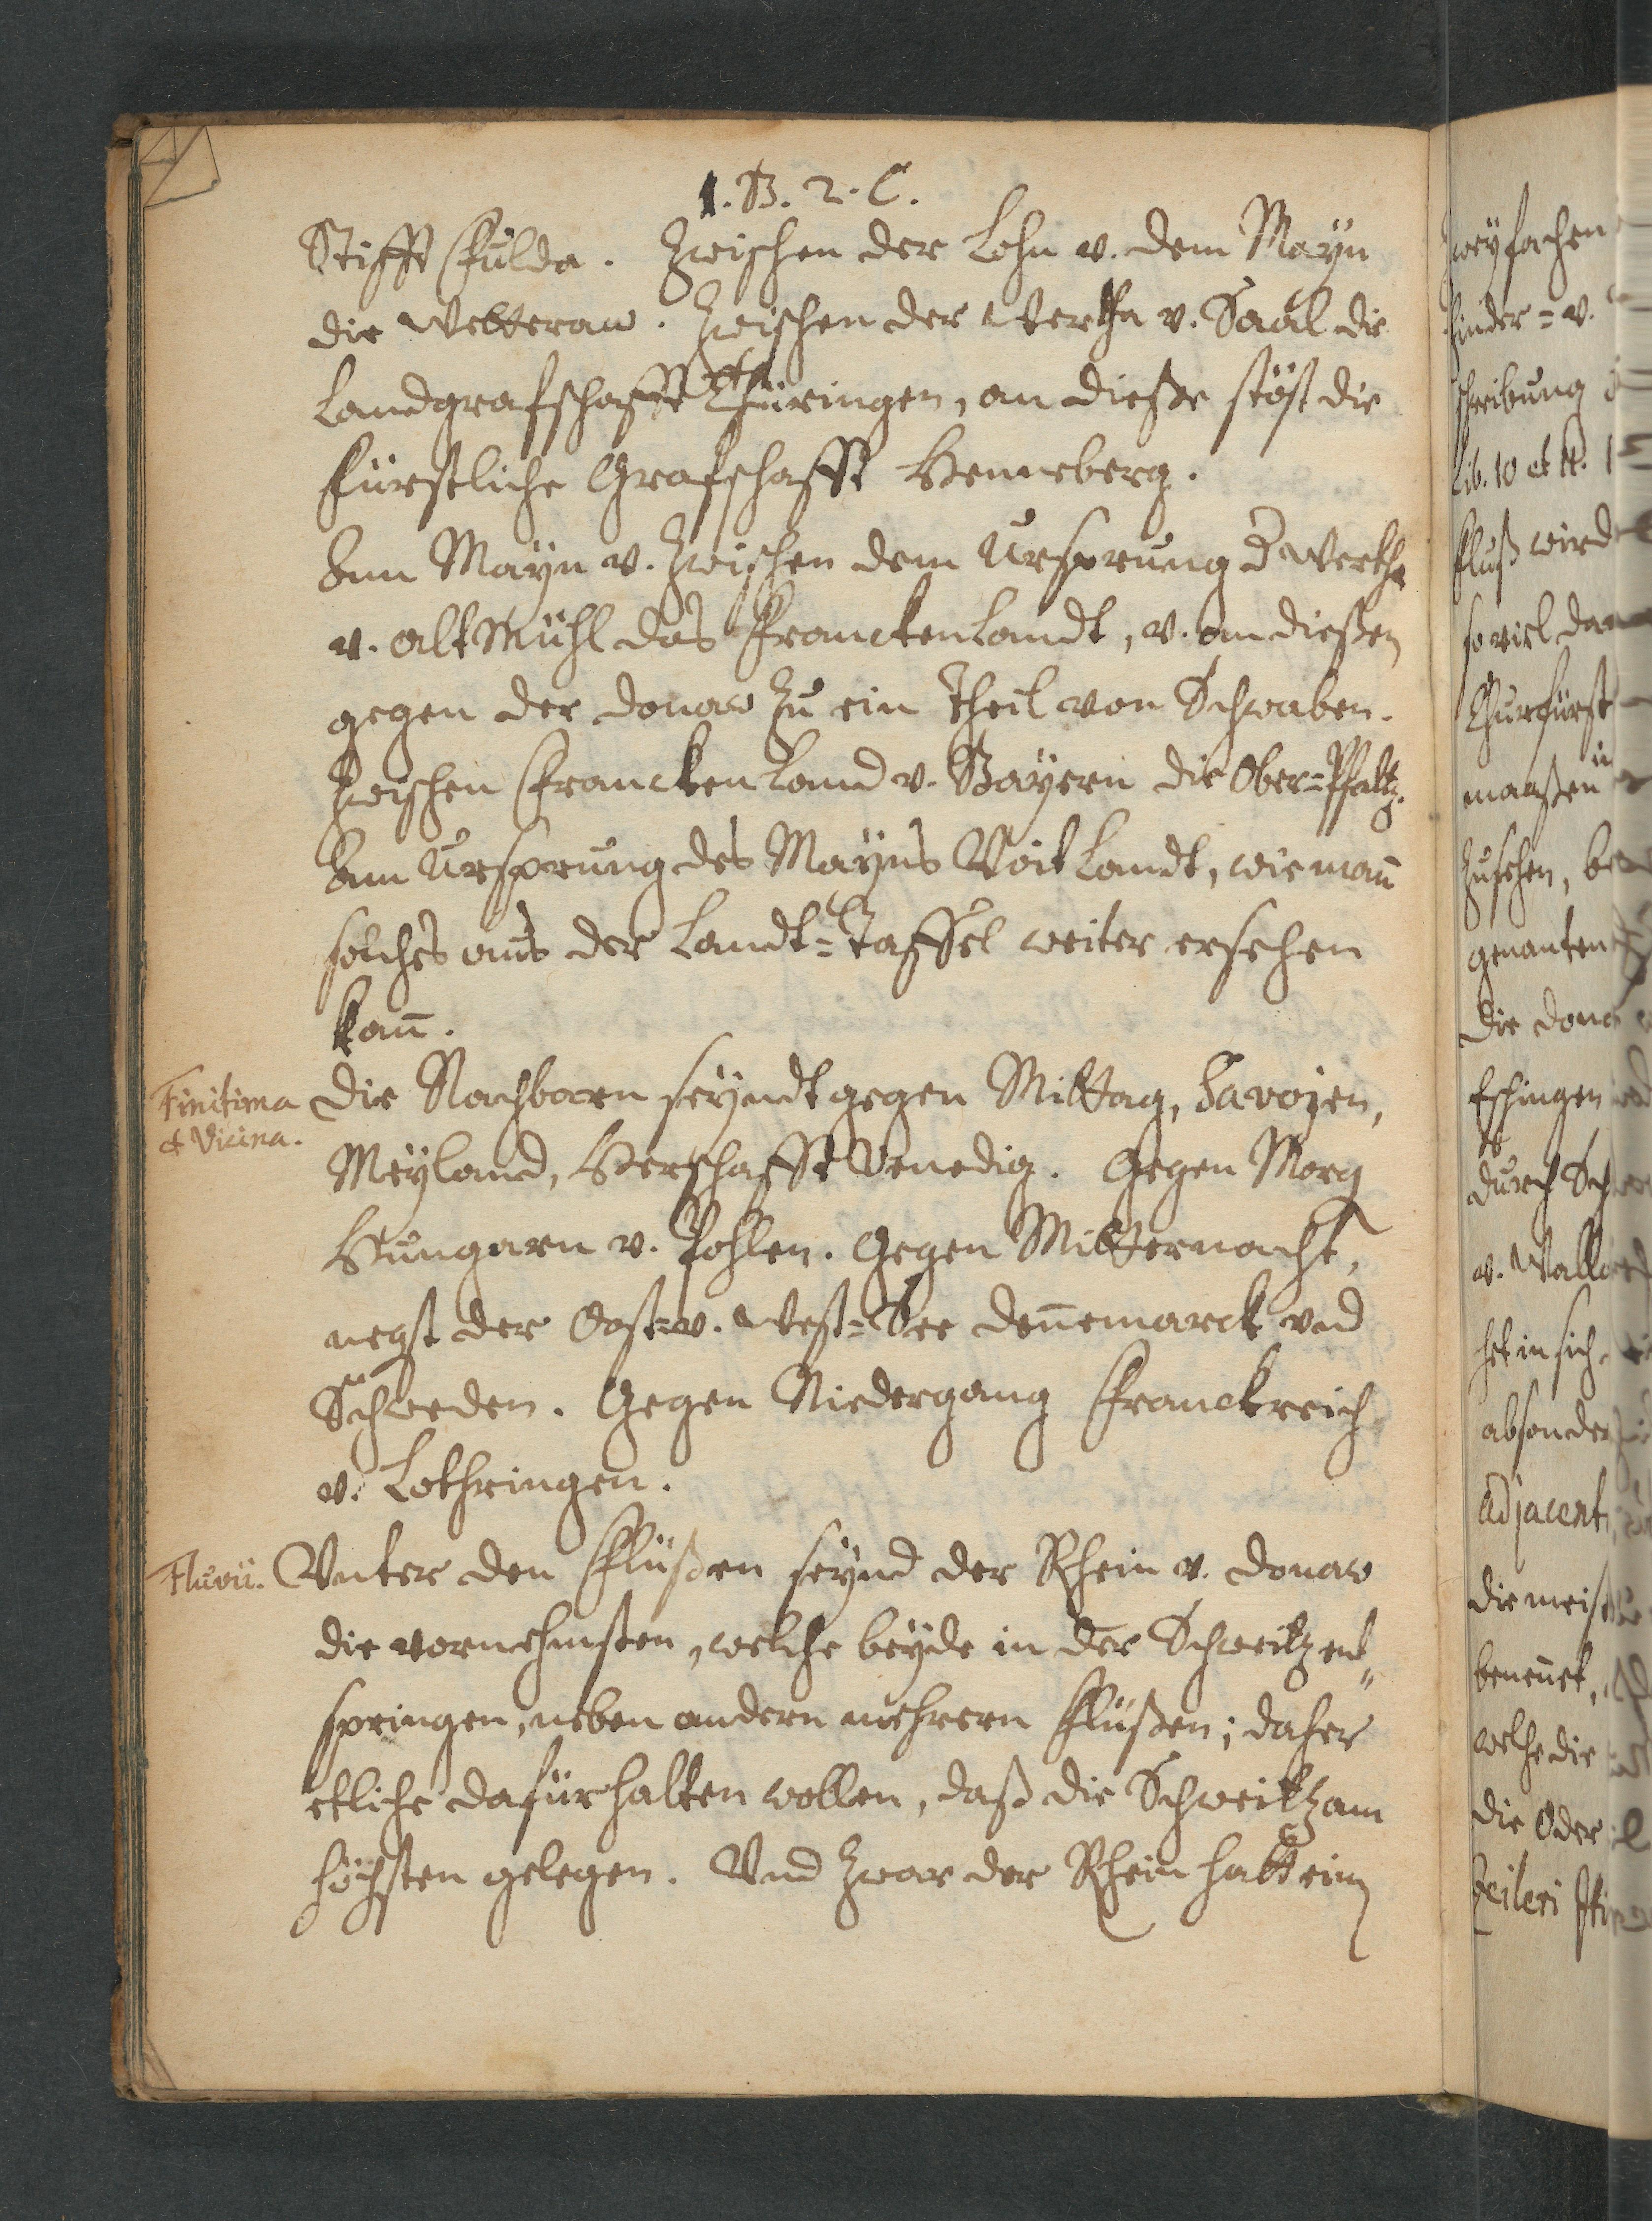 1. B. 2. C.
Stifft Fulda. Zwischen der Lohn v. dem Mayn
die Wetteraw. Zwischen der Wertha v. Saal die
Landgrafschafft Thüringen, an dieße stöst die
Fürstliche Grafschafft Henneberg.
Am Mayn v. Zwischen dem Ursprung d Wertha
v. Altmühl das Franckenlandt, v. an dießen
gegen der Donaw Zu ein Theil von Schwaben.
Zwischen Franckenland v. Bayern die Ober-Pfaltz.
Am Ursprung des Mayns Voitlandt, wie man̄
solches aus der Landt-Taffel weiter ersehen
kan̄.
Finitima
et Vicina.
Die Nachbarn seyndt gegen Mittag, Savojen,
Meyland, Herschafft Venedig. Gegen Morg
Hungarn v. Pohlen. Gegen Mitternacht,
negst der Oost-v. West-See Den̄emarck vnd
Schweden. Gegen Niedergang Franckreich
v. Lothringen.
Fluvii.
Vnter den Flüßen seynd der Rhein v. Donaw
die vornehmsten, welche beyde in der Schweitz ent„
springen, neben andern mehrern Flüßen; daher
etliche dafür halten wollen, daß die Schweitz am
höchsten gelegen. Vnd Zwar der Rhein hatt ein
Zweyfachen
hinder- v.
schreibung
Lib. 10 et
Fluß wird
so viel
Churfürst
maaßen
Zusehen,
genanten
Die Dona
Eschingen
durch Sch
v. Walla
het in sich
absonder
Adjacent
die meist
benen̄et,
welche die
die Oder
Zeileri Iti